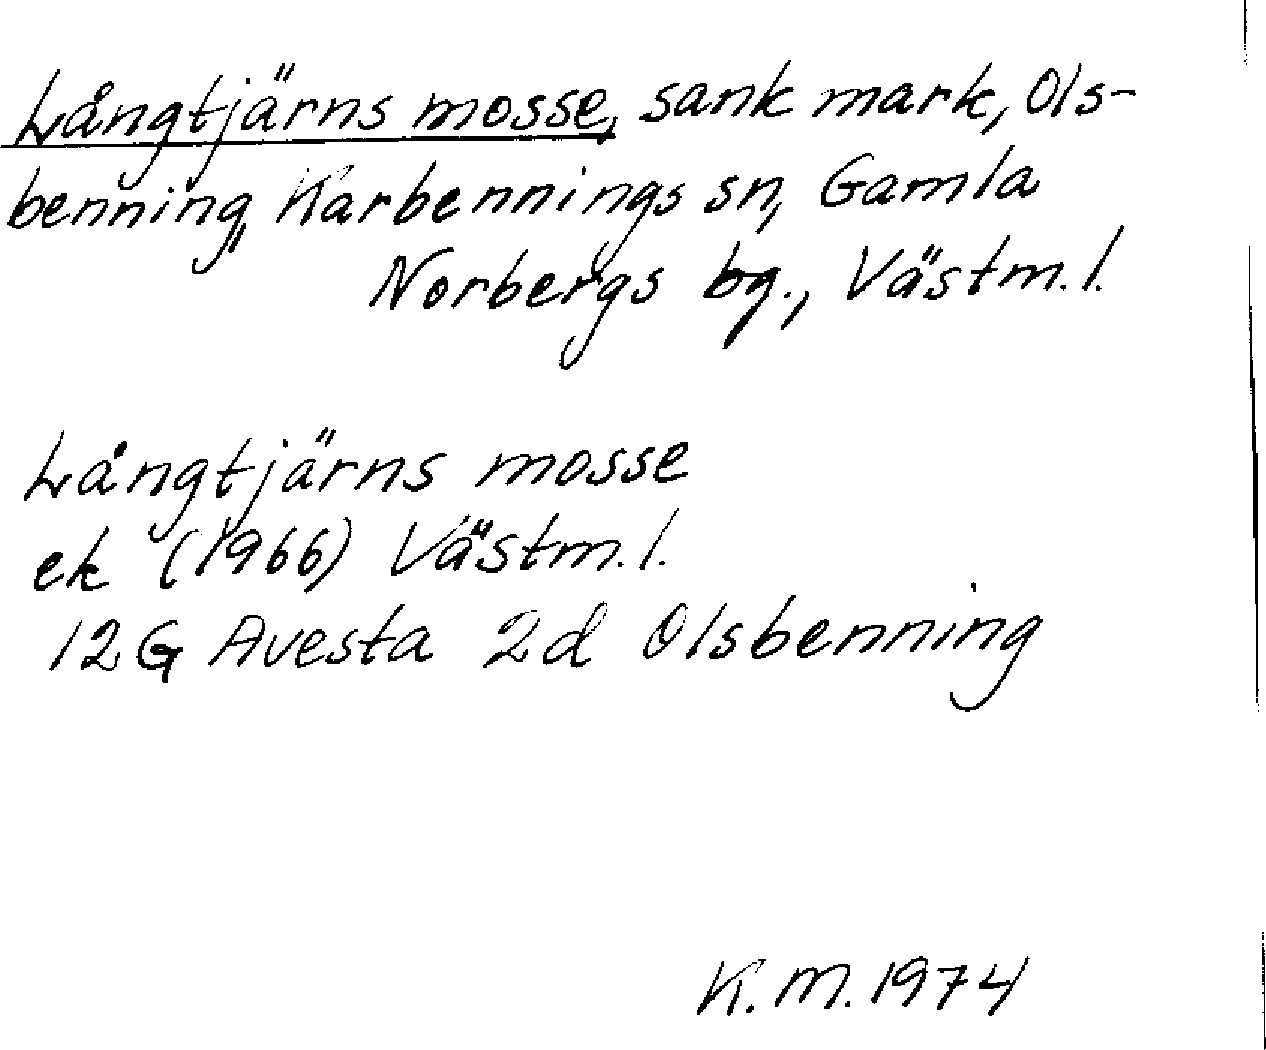 Långtjärns mosse, sank mark, Ols-
benning, Karbennings sn, Gamla
Norbergs bg., Västm. l.
Långtjärns mosse
ek (1966) Västm. l.
12G Avesta 2d Olsbenning
K. M. 1974